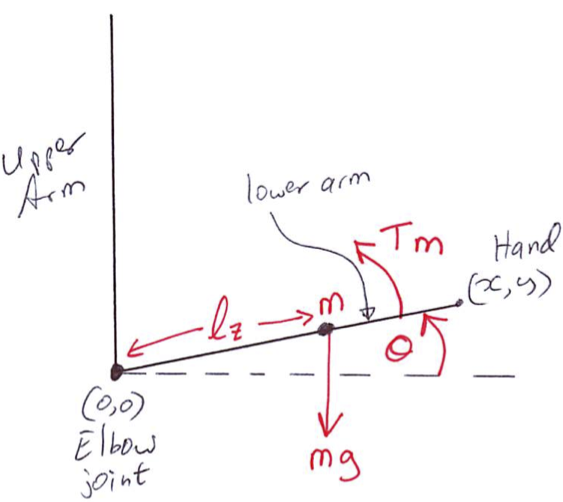 Upper
Arm
lower arm
Tm
Hand
(x,y)
m
lz
θ
(0,0)
Elbow
joint
mg